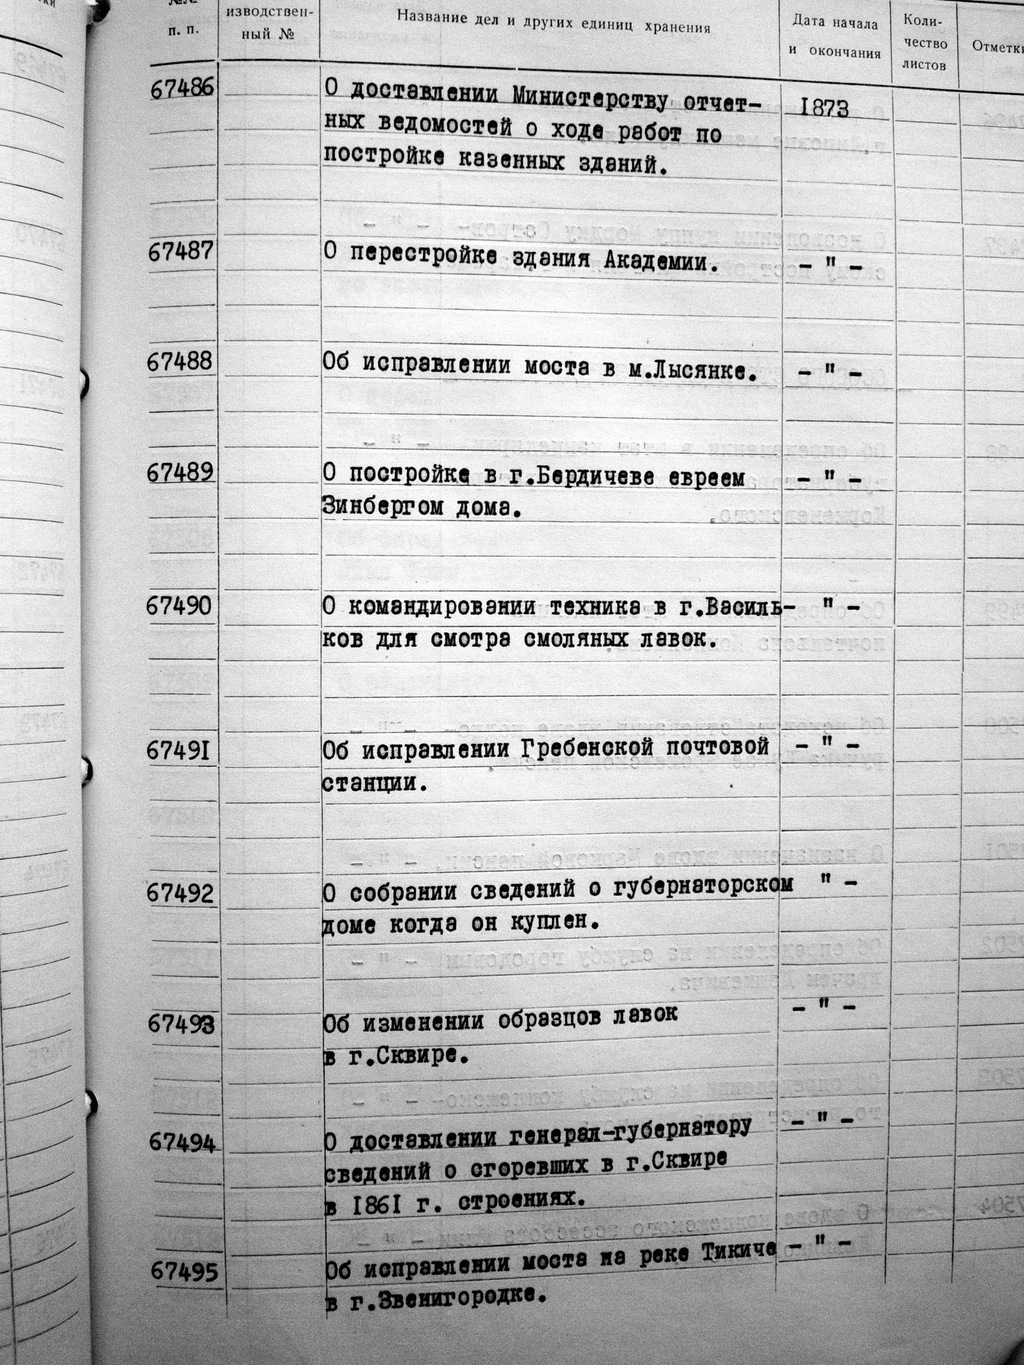 №№ изводствен- Название дел и других единиц хранения Дата начала Коли-
п. п. ный № и окончания чество Отметки
листов
67486 О доставлении Министерству отчет- 1873
ных ведомостей о ходе работ по
постройке казенных зданий.
67487 О перестройке здания Академии. - " -
67488 Об исправлении моста в м.Лысянке. - " -
67489 О постройке в г.Бердичеве евреем - " -
Зинбергом дома.
67490 О командировании техника в г.Василь- " -
ков для смотра смоляных лавок.
67491 Об исправлении Гребенской почтовой - " -
станции.
67492 О собрании сведений о губернаторском " -
доме когда он куплен.
67493 Об изменении образцов лавок - " -
в г.Сквире.
67494 О доставлении генерал-губернатору - " -
сведений о сгоревших в г.Сквире
в 1861 г. строениях.
67495 Об исправлении моста на реке Тикиче - " -
в г.Звенигородке.